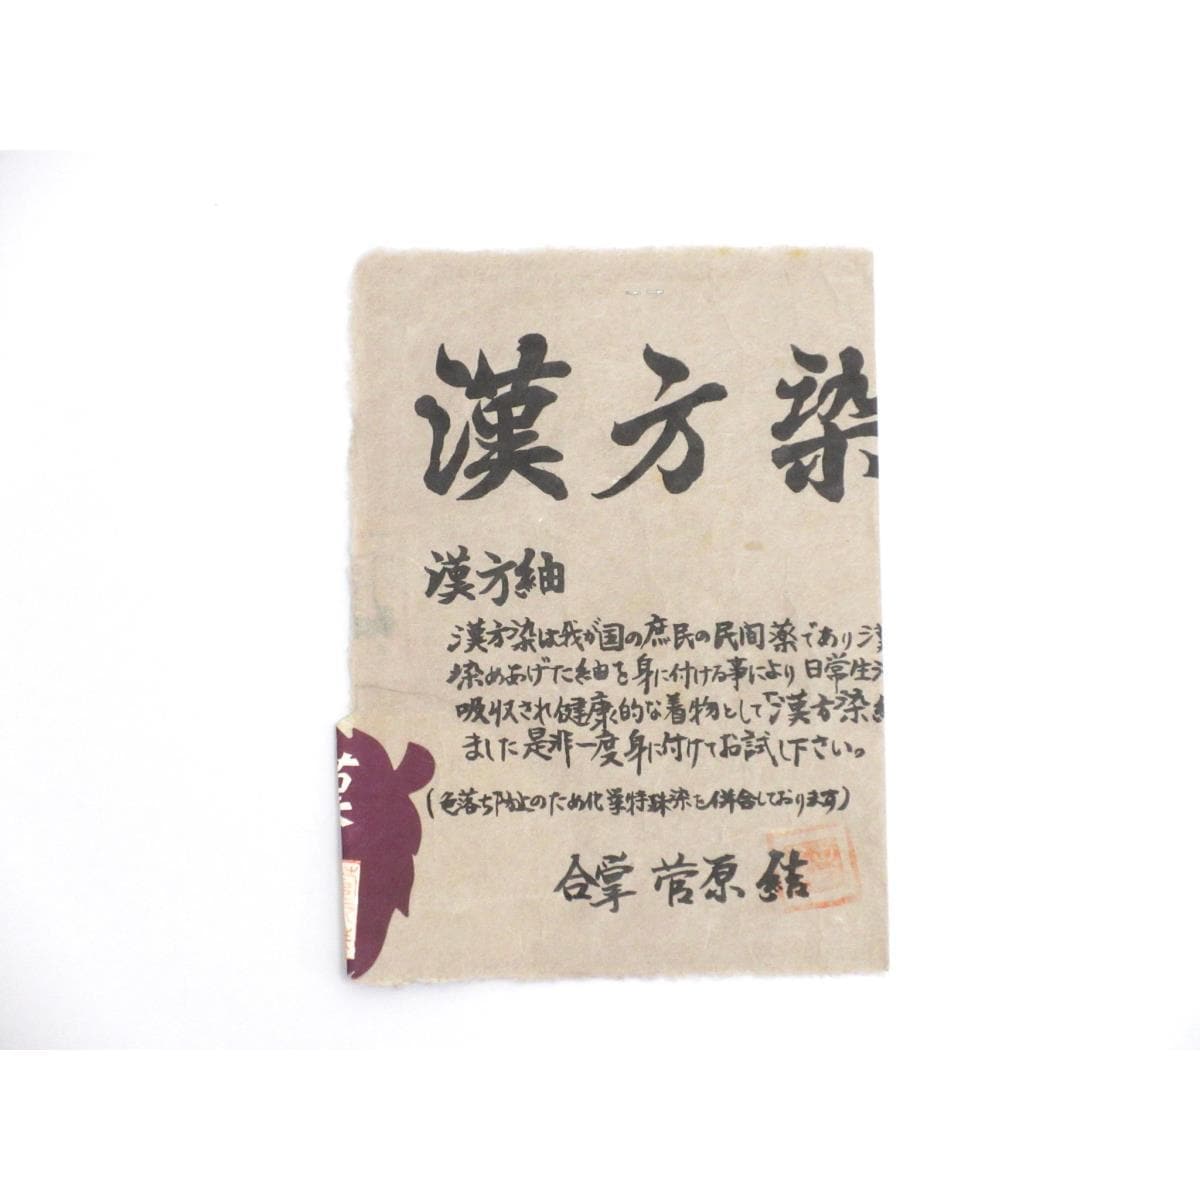 漢方染
漢方紬
漢方染は我が国の庶民の民間薬であり漢
染めあげた紬を身に付ける事により日常生活
吸収され健康的な着物として「漢方染紬
ました是非一度身に付けてお試し下さい。
(色落ち防止のため化学特殊染を併合しております)
合掌 菅原 結
草